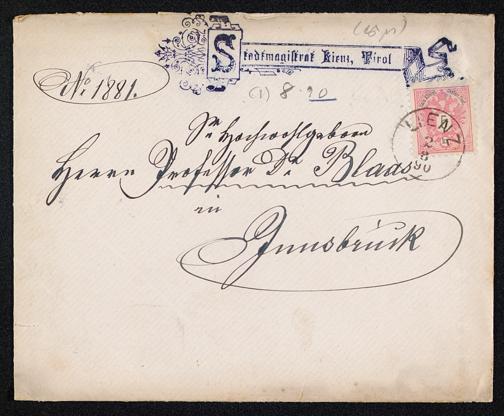 (45 μ)
Stadtmagistrat Lienz, Tirol
No 1881.
(1) 8.90
5
LIENZ
2
8
90
Sr Hochwohlgeboren
Herrn Professor Dr Blaas
in
Innsbruck